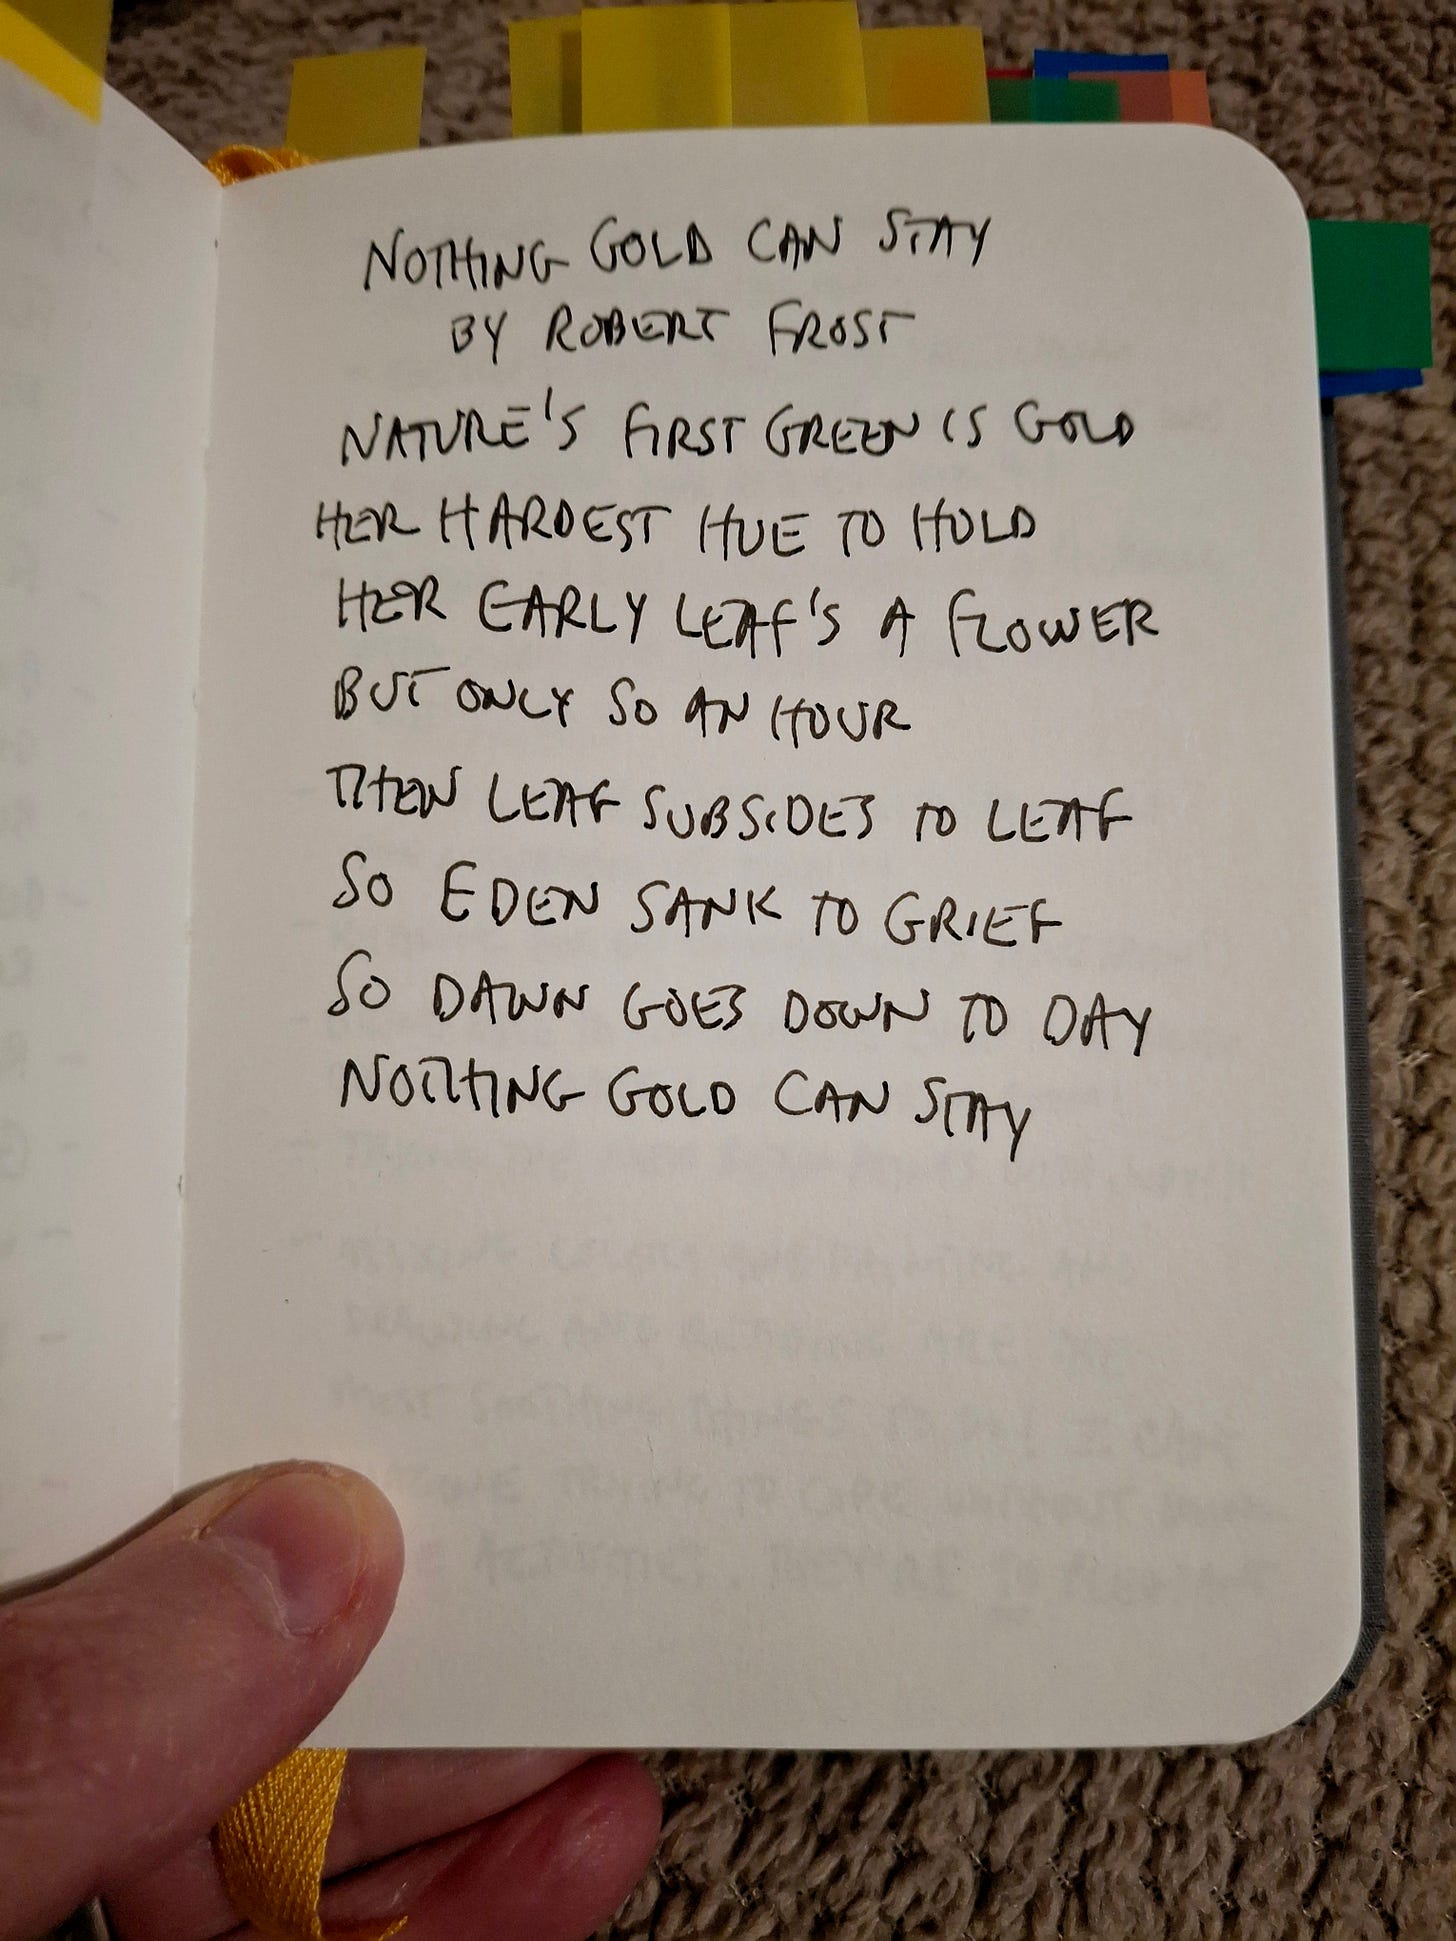 NOTHING GOLD CAN STAY
BY ROBERT FROST
NATURE'S FIRST GREEN IS GOLD
HER HARDEST HUE TO HOLD
HER EARLY LEAF'S A FLOWER
BUT ONLY SO AN HOUR
THEN LEAF SUBSIDES TO LEAF
SO EDEN SANK TO GRIEF
SO DAWN GOES DOWN TO DAY
NOTHING GOLD CAN STAY